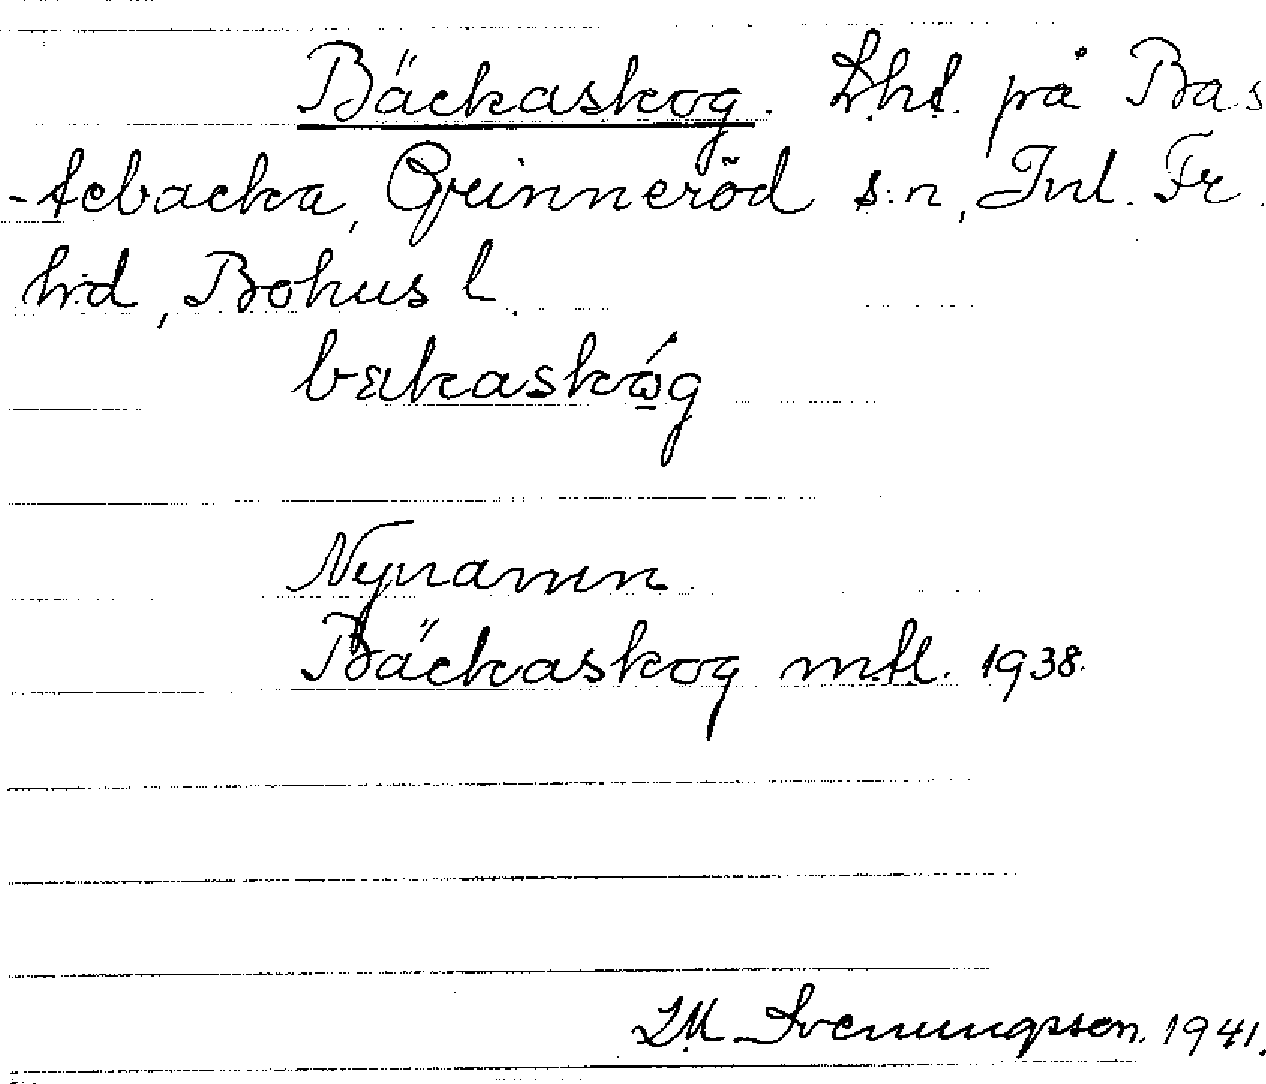 Bäckaskog. Lhd. på Bas
-tebacka, Grinneröd s:n, Inl. Fr.
hrd, Bohus l.
bækaskǿg
Nynamn.
Bäckaskog mtl. 1938.
LM Svenungsson. 1941.